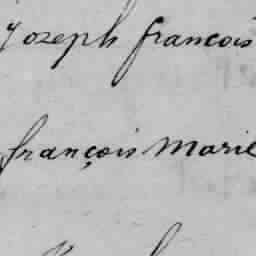 Jozeph francois
françois Marie